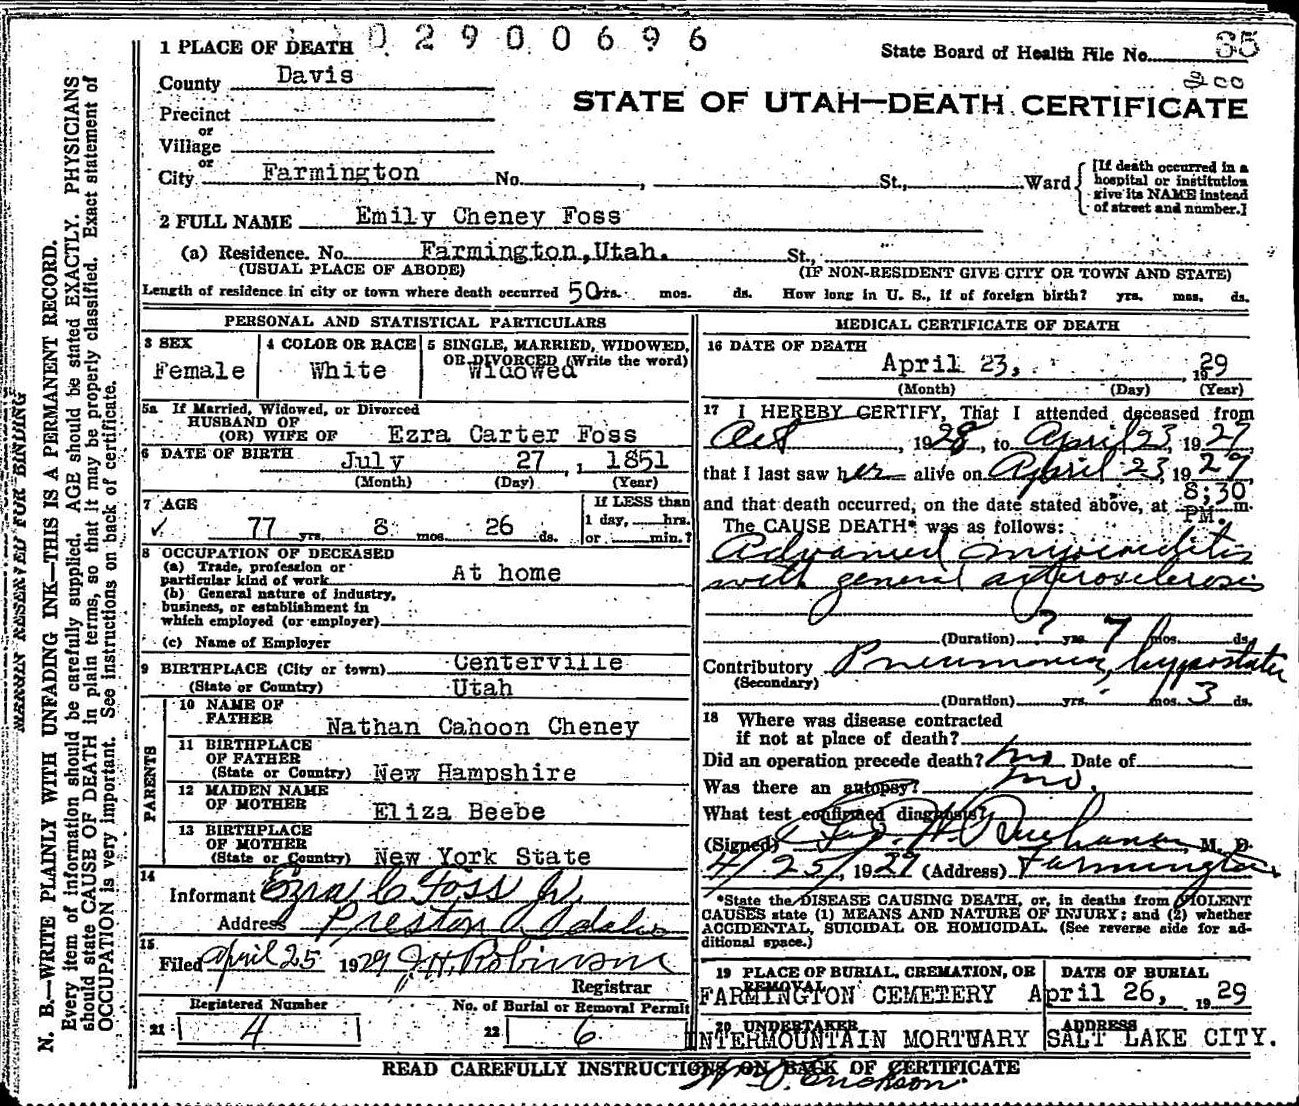 02900696
1 PLACE OF DEATH
State Board of Health File No. 65
County Davis
STATE OF UTAH—DEATH CERTIFICATE
Precinct
or
Village
or
City Farmington No. , St., Ward
[If death occurred in a
hospital or institution
give its NAME instead
of street and number.]
2 FULL NAME Emily Cheney Foss
(a) Residence. No. Farmington, Utah. St.,
(USUAL PLACE OF ABODE) (IF NON-RESIDENT GIVE CITY OR TOWN AND STATE)
Length of residence in city or town where death occurred 50 yrs. mos. ds. How long in U. S., if of foreign birth? yrs. mos. ds.
PERSONAL AND STATISTICAL PARTICULARS
3 SEX
Female
4 COLOR OR RACE
White
5 SINGLE, MARRIED, WIDOWED,
OR DIVORCED (Write the word)
Widowed
5a If Married, Widowed, or Divorced
HUSBAND OF
(OR) WIFE OF Ezra Carter Foss
6 DATE OF BIRTH July 27, 1851
(Month) (Day) (Year)
7 AGE
77 yrs. 8 mos. 26 ds.
If LESS than
1 day, hrs.
or min.?
8 OCCUPATION OF DECEASED
(a) Trade, profession or
particular kind of work At home
(b) General nature of industry,
business, or establishment in
which employed (or employer)
(c) Name of Employer
9 BIRTHPLACE (City or town) Centerville
(State or Country) Utah
PARENTS
10 NAME OF
FATHER Nathan Cahoon Cheney
11 BIRTHPLACE
OF FATHER
(State or Country) New Hampshire
12 MAIDEN NAME
OF MOTHER Eliza Beebe
13 BIRTHPLACE
OF MOTHER
(State or Country) New York State
14
Informant Ezra C Foss Jr.
Address Preston Idaho
15
Filed April 25 1929 J.H. Robinson
Registrar
Registered Number
21 4
No. of Burial or Removal Permit
22 6
MEDICAL CERTIFICATE OF DEATH
16 DATE OF DEATH
April 23, 1929
(Month) (Day) (Year)
17 I HEREBY CERTIFY, That I attended deceased from
Oct, 1928, to April 23, 1929,
that I last saw her alive on April 23, 1929,
and that death occurred, on the date stated above, at 8:30 m.
PM.
The CAUSE DEATH* was as follows:
Advanced myocarditis
with general arteriosclerosis
(Duration) ? yrs. 7 mos. ds.
Contributory Pneumonia, hypostatic
(Secondary)
(Duration) yrs. mos. 3 ds.
18 Where was disease contracted
if not at place of death?
Did an operation precede death? no Date of
Was there an autopsy? no.
What test confirmed diagnosis?
(Signed) H. Buchanan, M. D.
4/25/, 1929 (Address) Farmington
*State the DISEASE CAUSING DEATH, or, in deaths from VIOLENT
CAUSES state (1) MEANS AND NATURE OF INJURY; and (2) whether
ACCIDENTAL, SUICIDAL OR HOMICIDAL. (See reverse side for ad-
ditional space.)
19 PLACE OF BURIAL, CREMATION, OR
REMOVAL
FARMINGTON CEMETERY
DATE OF BURIAL
April 26, 1929
20 UNDERTAKER
INTERMOUNTAIN MORTUARY
ADDRESS
SALT LAKE CITY.
READ CAREFULLY INSTRUCTIONS ON BACK OF CERTIFICATE
Erickson.
MARGIN RESERVED FOR BINDING
N. B.—WRITE PLAINLY WITH UNFADING INK—THIS IS A PERMANENT RECORD.
Every item of information should be carefully supplied. AGE should be stated EXACTLY. PHYSICIANS
should state CAUSE OF DEATH in plain terms, so that it may be properly classified. Exact statement of
OCCUPATION is very important. See instructions on back of certificate.